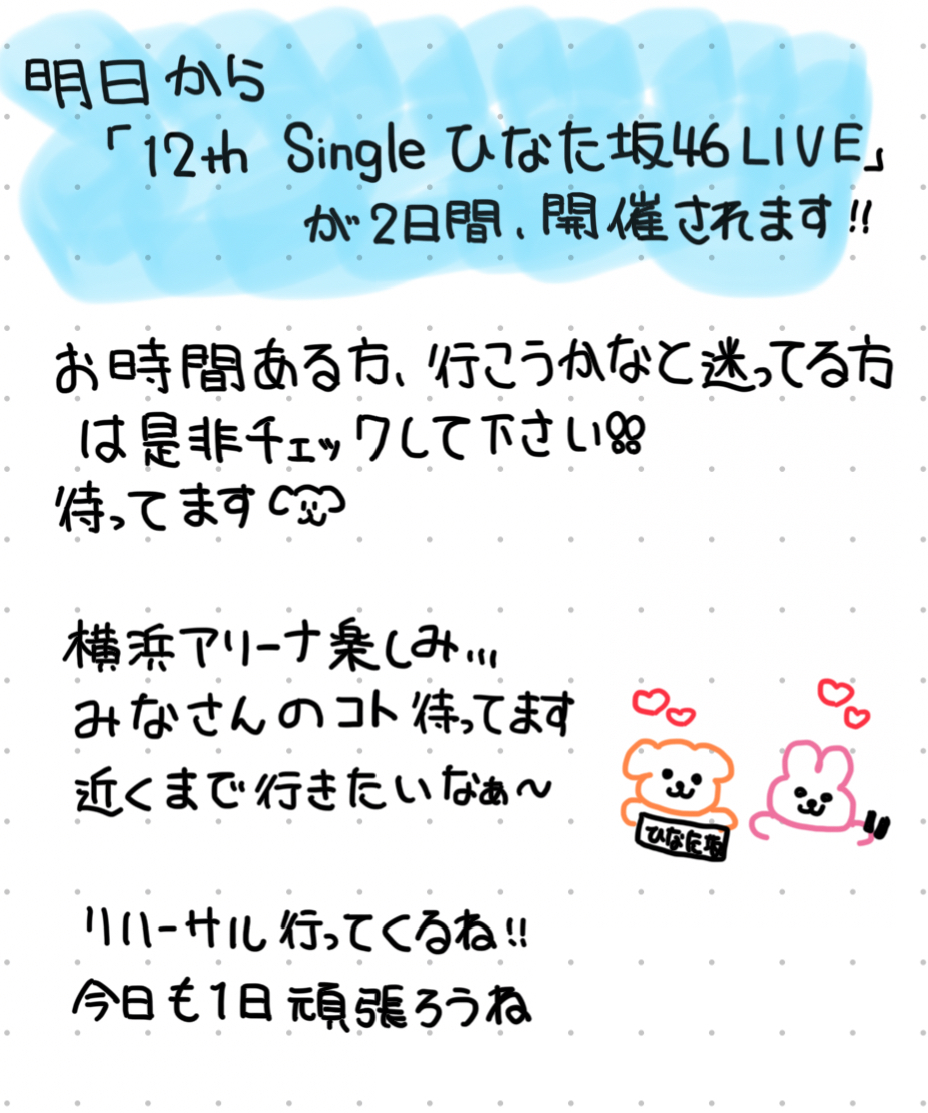 明日から
「12th Single ひなた坂46 LIVE」
が2日間、開催されます!!
お時間ある方、行こうかなと迷ってる方
は是非チェックして下さい!!
待ってます
横浜アリーナ楽しみ...
みなさんのコト待ってます
近くまで行きたいなぁ〜
ひなた坂
リハーサル行ってくるね!!
今日も1日頑張ろうね